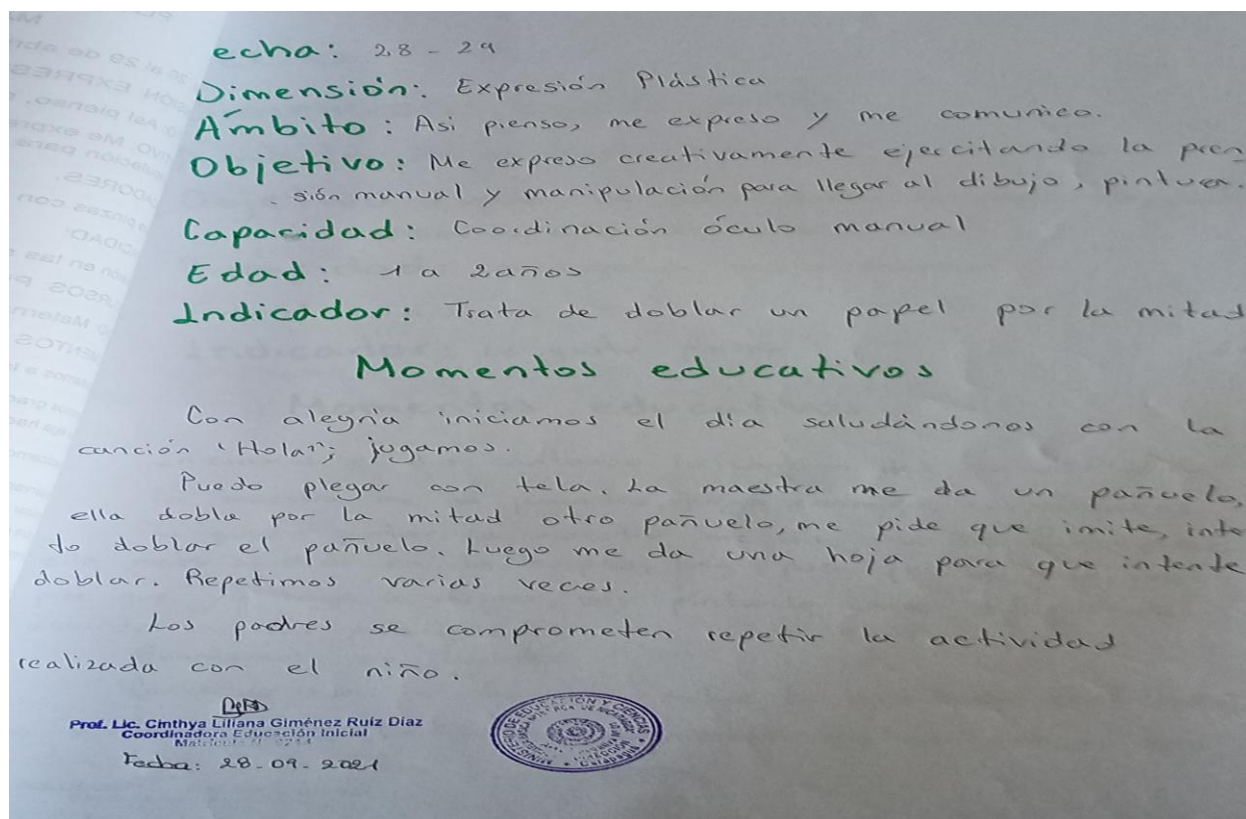 echa: 28 - 29
Dimensión: Expresión Plástica
Ámbito: Asi pienso, me expreso y me comunico.
Objetivo: Me expreso creativamente ejercitando la pren
sión manual y manipulación para llegar al dibujo, pintura.
Capacidad: Coordinación óculo manual
Edad: 1 a 2 años
Indicador: Trata de doblar un papel por la mitad
Momentos educativos
Con alegría iniciamos el día saludándonos con la
canción "Hola"; jugamos.
Puedo plegar con tela. La maestra me da un pañuelo,
ella dobla por la mitad otro pañuelo, me pide que imite, inten
to doblar el pañuelo. Luego me da una hoja para que intente
doblar. Repetimos varias veces.
Los padres se comprometen repetir la actividad
realizada con el niño.
Prof. Lic. Cinthya Liliana Giménez Ruíz Díaz
Coordinadora Educación Inicial
Matrícula N°
Fecha: 28-09-2021
MINISTERIO DE EDUCACIÓN Y CIENCIAS